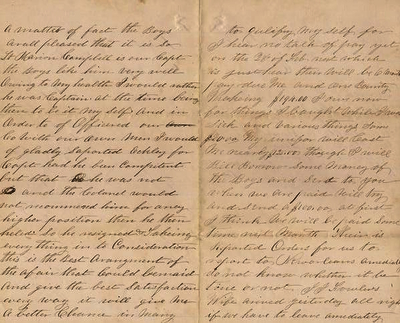 a matter of fact the Boys
are all pleased that it is so
Lt Hanson Campbell is our Capt
the Boys like him very well
owing to My health I would rather
he was Captain at the time being
than to be it My Self and in
Order to of Officered our
Co with our Own Men I would
of gladly Suported Ackley for
Capt had he been Competent
but that he was not
and the Colonel would
not recommend him for any
higher position than he then
held So he resigned & Taking
every thing in to Consideration
this is the best Arangment of
the Afair that could be maid
and give the best Satisfaction
every way it will give Me
A better Chance in Many
to Qulifiy My Self for
I hear no talk of pay yet
on the 28 of Feb next which
is just near then will be
pay due Me and one County
Making I owe now
for things I bought
and various things Some
My uniform will cost
Me many things I will
of
the Boys and Sent to you
when we are paid will try
and send at first
I think We will be paid Some
time next Month their is
reported Orders for us to
report to New Orleans Amediately
do not know whether it be
true or not J H Fowlers
Wife arived yesterday all right
if we have to leave amediately